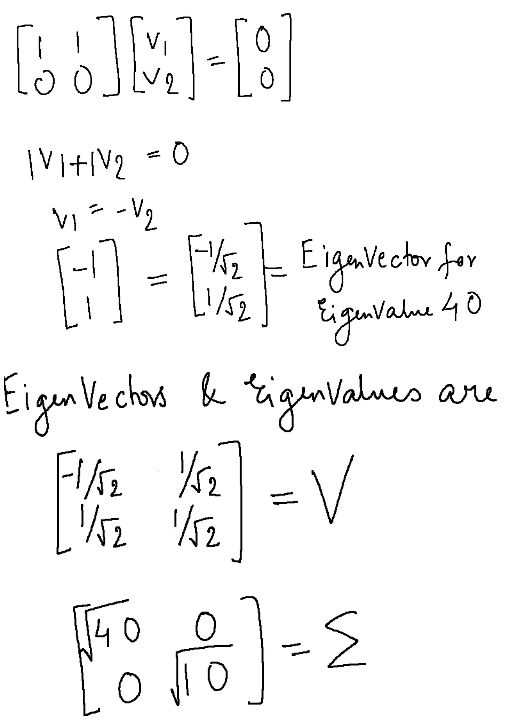 [1 1
0 0] [v1
v2] = [0
0]
1V1+1V2 = 0
V1 = -V2
[-1
1] = [-1/√2
1/√2] = EigenVector for
EigenValue 40
EigenVectors & EigenValues are
[-1/√2 1/√2
1/√2 1/√2] = V
[√40 0
0 √10] = Σ